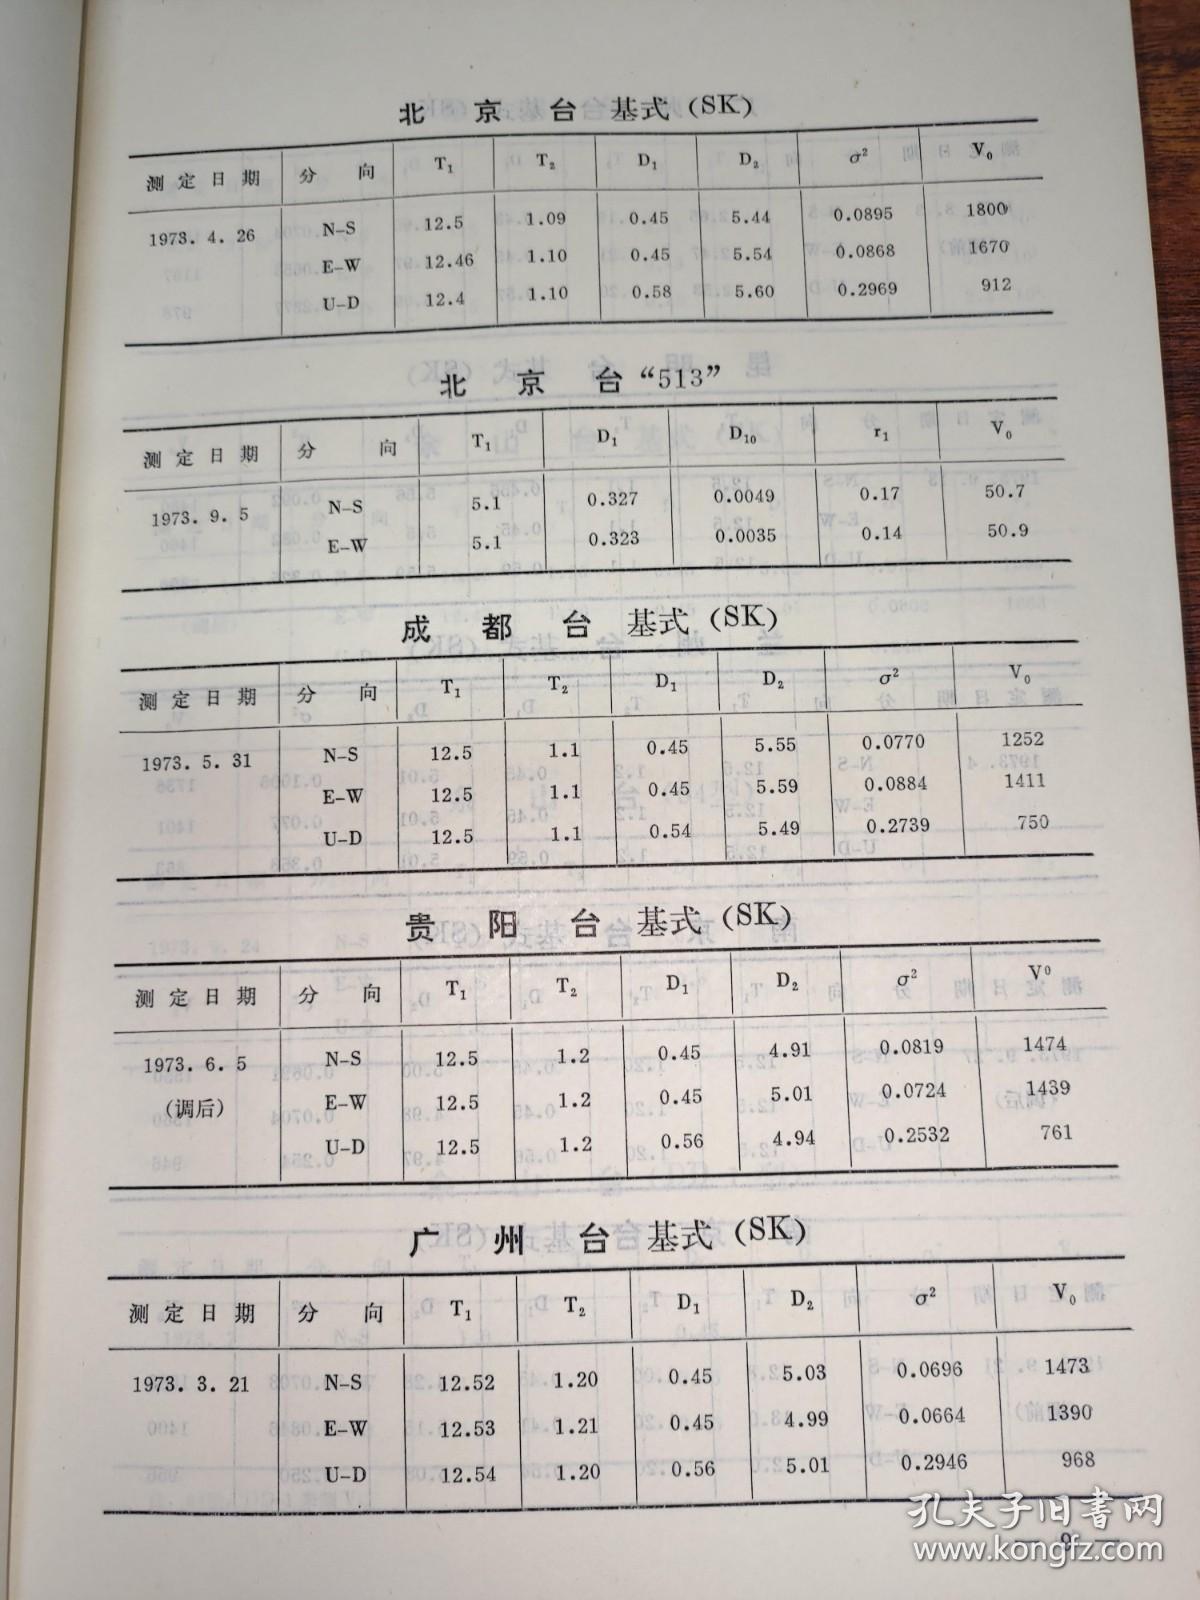 北京台 基式(SK)
测定日期 分向 T₁ T₂ D₁ D₂ σ² V₀
1973. 4. 26 N-S 12.5 1.09 0.45 5.44 0.0895 1800
E-W 12.46 1.10 0.45 5.54 0.0868 1670
U-D 12.4 1.10 0.58 5.60 0.2969 912
北京台“513”
测定日期 分向 T₁ D₁ D₁₀ r₁ V₀
1973. 9. 5 N-S 5.1 0.327 0.0049 0.17 50.7
E-W 5.1 0.323 0.0035 0.14 50.9
成都台 基式(SK)
测定日期 分向 T₁ T₂ D₁ D₂ σ² V₀
1973. 5. 31 N-S 12.5 1.1 0.45 5.55 0.0770 1252
E-W 12.5 1.1 0.45 5.59 0.0884 1411
U-D 12.5 1.1 0.54 5.49 0.2739 750
贵阳台 基式(SK)
测定日期 分向 T₁ T₂ D₁ D₂ σ² V⁰
1973. 6. 5 N-S 12.5 1.2 0.45 4.91 0.0819 1474
(调后) E-W 12.5 1.2 0.45 5.01 0.0724 1439
U-D 12.5 1.2 0.56 4.94 0.2532 761
广州台 基式(SK)
测定日期 分向 T₁ T₂ D₁ D₂ σ² V₀
1973. 3. 21 N-S 12.52 1.20 0.45 5.03 0.0696 1473
E-W 12.53 1.21 0.45 4.99 0.0664 1390
U-D 12.54 1.20 0.56 5.01 0.2946 968
孔夫子旧书网
— 9 —
www.kongfz.com